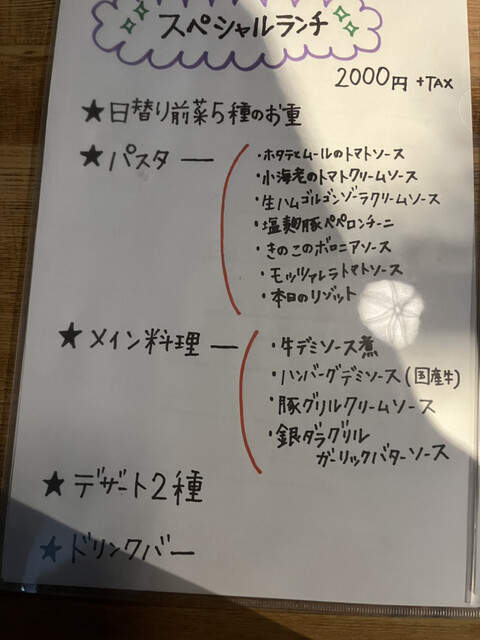 スペシャルランチ
2000円 +TAX
★日替り前菜5種のお重
★パスター
・ホタテとムールのトマトソース
・小海老のトマトクリームソース
・生ハムゴルゴンゾーラクリームソース
・塩麹豚ペペロンチーニ
・きのこのボロニアソース
・モッツァレラトマトソース
・本日のリゾット
★メイン料理ー
・牛デミソース煮
・ハンバーグデミソース(国産牛)
・豚グリルクリームソース
・銀ダラグリル
ガーリックバターソース
★デザート2種
★ドリンクバー